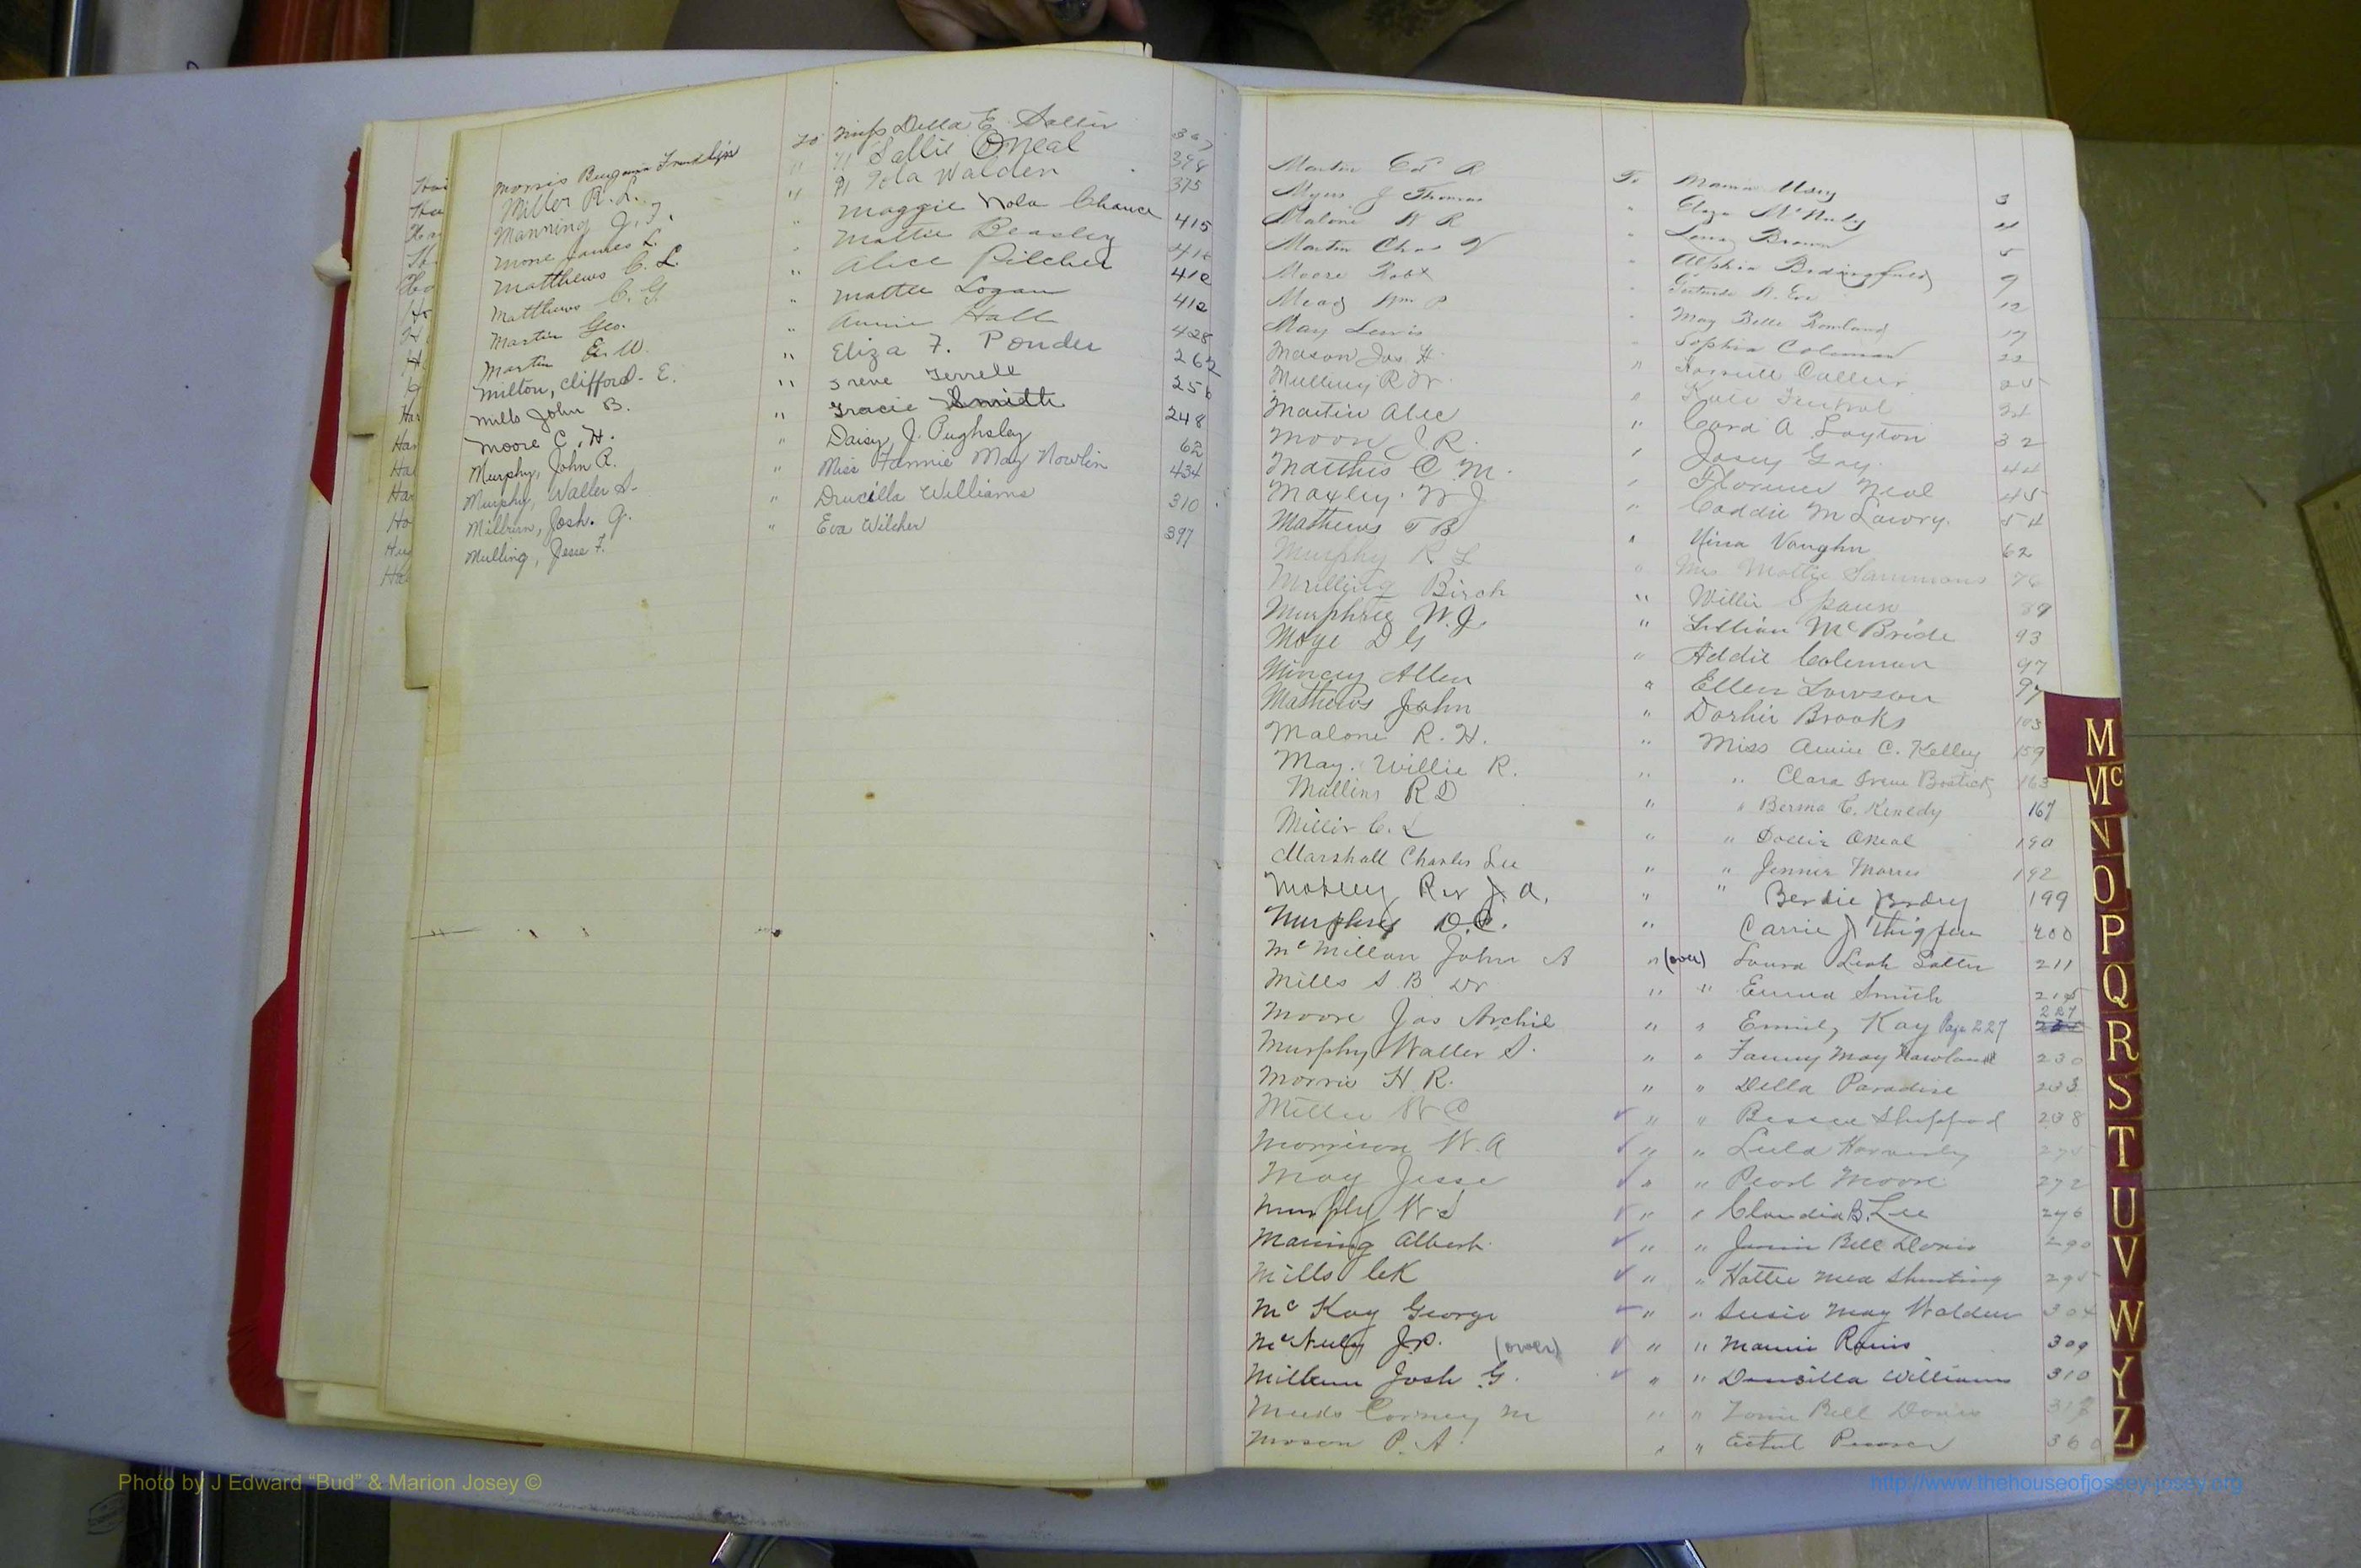 Morris Benjamin Franklin to Miss Della E. Salter 367
Miller R. L. " " Sallie ONeal 398
Manning J. J. " " Iola Walden 375
More James L. " Maggie Nola Chance 415
Matthews C. L. " Mattie Beasley 416
Matthews C. G. " Alice Pilcher 412
Martin Geo. " Mattie Logan 412
Martin E. W. " Annie Hall 428
Milton, Clifford E. " Eliza F. Ponder 262
Mills John B. " Irene Terrell 256
Moore C. H. " Gracie Smith 248
Murphy, John R. " Daisy J. Pughsley 62
Murphy, Walter S. " Miss Fannie May Nowlin 434
Milburn, Josh. G. " Drucilla Williams 310
Mulling, Jesse F. " Eva Wilcher 397
Martin R To Mary 3
Myers J Thomas " McNuly 4
Malone W R " Brown 5
Martin Chas " 9
Moore Robt " Gertrude 12
Mead Wm P " May Belle Rowland 17
May Lewis " Sophia Coleman 22
Mason Jas H. " 25
Mulling R " Kate
Martin Alec " Cora A Layton 32
Moon J R. " Josey Gay 44
Mathis C. M. " Florence Neal 45
Maxley W J " Caddie M Lowry 54
Mathews T B " Nina Vaughn 62
Murphy R L " Mrs Mattie Sammons 76
Mulling Birch " Willie Spann 89
Murphree W. J. " Lillian McBride 93
Moye D G " Addie Coleman 97
Mincey Allen " Ellen Lawson 97
Mathews John " Brooks 103
Malone R. H. " Miss Annie C. Kelley 159
May. Willie R. " " Clara Irene Bostick 163
Mullins R D " " Berma C. Kenedy 167
Miller C. L " " Dollie ONeal 190
Marshall Charles Lee " " Jennie Morris 192
Mobley Rev J. A. " " Berdie 199
Murphey D. C. " Carrie J Thigpen 200
McMillan John A " (over) Laura Leah Salter 211
Mills S. B Dr " " Emma Smith 215
Moore Jas Archie " " Emily Kay Page 227 227
Murphy Walter S. " " Fanny May Nowland 230
Morris H R. " " Della Paradise 233
Miller W C ✓ " " Bessie Sheppard 238
Morrison W. A ✓ " " Lula 275
May Jesse ✓ " " Pearl Moore 272
Murphy W S ✓ " " Claudia B. Lee 276
Maning Albert ✓ " " Janie Bell Davis 290
Mills C K ✓ " " Hattie Mea 295
McKay George ✓ " " Susie May Walden 304
McNuly J. P. (over) ✓ " " Mamie Rains 309
Milburn Josh G. ✓ " " Drucilla Williams 310
Meeds M " " Bell Davis 317
Mason P. A. " " 360
M
Mc
N
O
P
Q
R
S
T
U
V
W
Y
Z
Photo by J Edward “Bud” & Marion Josey ©
http://www.thehouseofjossey-josey.org